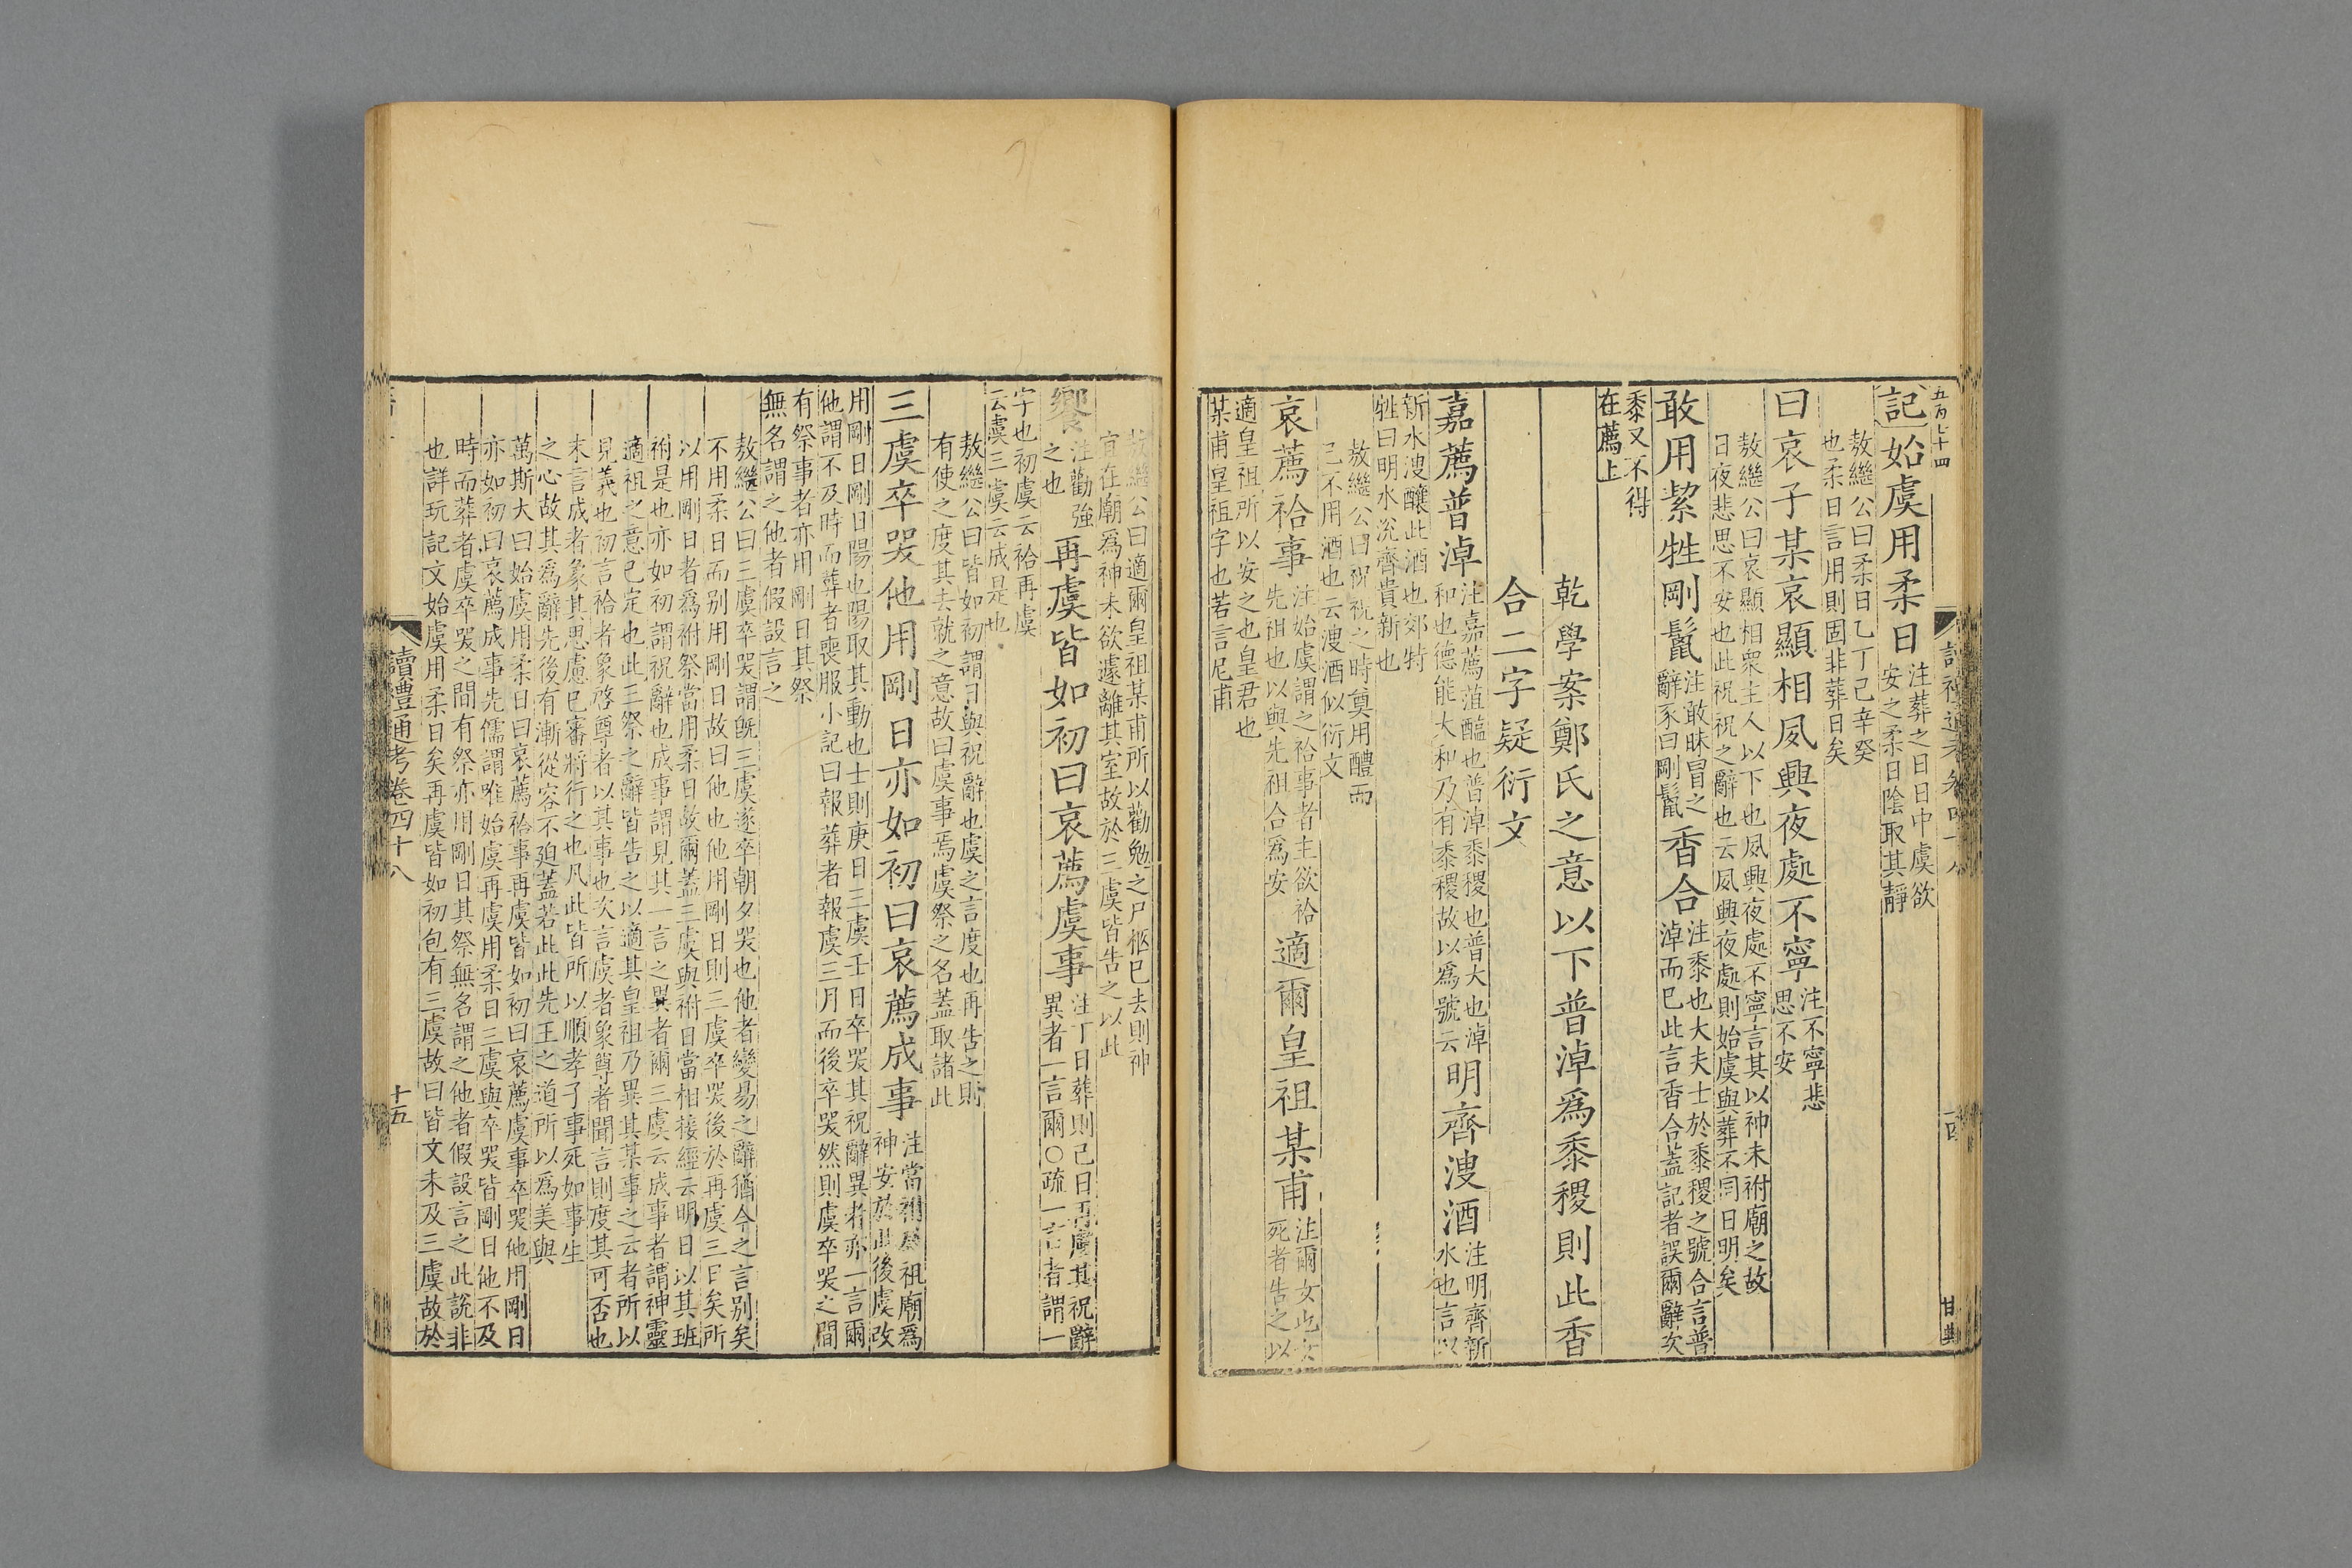 五百七十四
讀禮通考卷四十八
十四
記始虞用柔日注葬之日日中虞欲
安之柔日陰取其靜
敖繼公曰柔日乙丁己辛癸
也柔日言用則固非葬日矣
曰哀子某哀顯相夙興夜處不寧注不寧悲
思不安
敖繼公曰哀顯相衆主人以下也夙興夜處不寧言其以神未祔廟之故
日夜悲思不安也此祝祝之辭也云夙興夜處則始虞與葬不同日明矣
敢用絜牲剛鬣注敢昧冒之
辭豕曰剛鬣香合注黍也大夫士於黍稷之號合言普
淖而巳此言香合蓋記者誤爾辭次
黍又不得
在薦上
乾學案鄭氏之意以下普淖爲黍稷則此香
合二字疑衍文
嘉薦普淖注嘉薦菹醢也普淖黍稷也普大也淖
和也德能大和乃有黍稷故以爲號云明齊溲酒注明齊新
水也言以
新水溲釀此酒也郊特
牲曰明水涗齊貴新也
敖繼公曰祝祝之時奠用醴而
已不用酒也云溲酒似衍文
哀薦祫事注始虞謂之祫事者主欲祫
先祖也以與先祖合爲安適爾皇祖某甫注爾女也女
死者告之以
適皇祖所以安之也皇君也
某甫皇祖字也若言尼甫
敖繼公曰適爾皇祖某甫所以勸勉之尸柩巳去則神
宜在廟爲神未欲遽離其室故於三虞皆告之以此
饗注勸強
之也再虞皆如初曰哀薦虞事注丁日葬則己日再虞其祝辭
異者一言爾○疏一言者謂一
字也初虞云祫再虞
云虞三虞云成是也
敖繼公曰皆如初謂日與祝辭也虞之言度也再告之則
有使之度其去就之意故曰虞事焉虞祭之名蓋取諸此
三虞卒哭他用剛日亦如初曰哀薦成事注當祔於祖廟爲
神安於此後虞改
用剛日剛日陽也陽取其動也士則庚日三虞壬日卒哭其祝辭異者亦一言爾
他謂不及時而葬者喪服小記曰報葬者報虞三月而後卒哭然則虞卒哭之間
有祭事者亦用剛日其祭
無名謂之他者假設言之
敖繼公曰三虞卒哭謂旣三虞遂卒朝夕哭也他者變易之辭猶今之言别矣
不用柔日而别用剛日故曰他也他用剛日則三虞卒哭後於再虞三日矣所
以用剛日者爲祔祭當用柔日故爾蓋三虞與祔日當相接經云明日以其班
祔是也亦如初謂祝辭也成事謂見其一言之異者爾三虞云成事者謂神靈
適祖之意已定也此三祭之辭皆告之以適其皇祖乃異其某事之云者所以
見義也初言祫者象啓尊者以其事也次言虞者象尊者聞言則度其可否也
末言成者象其思慮已審將行之也凡此皆所以順孝子事死如事生
之心故其爲辭先後有漸從容不迫蓋若此此先王之道所以爲美與
萬斯大曰始虞用柔日曰哀薦祫事再虞皆如初曰哀薦虞事卒哭他用剛日
亦如初曰哀薦成事先儒謂唯始虞再虞用柔日三虞與卒哭皆剛日他不及
時而葬者虞卒哭之間有祭亦用剛日其祭無名謂之他者假設言之此說非
也詳玩記文始虞用柔日矣再虞皆如初包有三虞故曰皆文未及三虞故於
讀禮通考卷四十八
十五